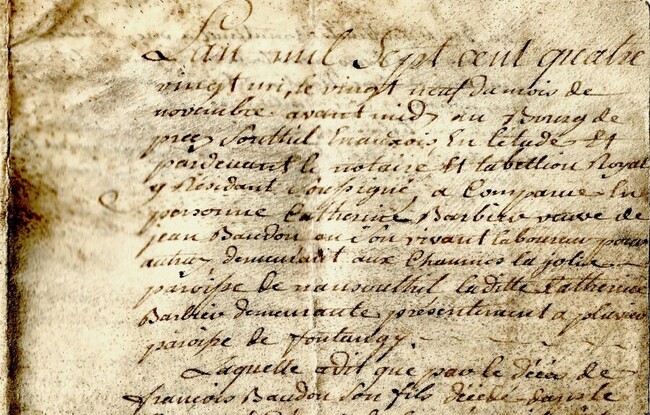 L'an mil Sept cent quatre
vingt un, le vingt neuf du mois de
novembre avant midy au Bourg de
precy Soutthil En auxois En l'etude Et
pardevant le notaire Et tabellion Royal
y Residant Soussigné a Comparue En
personne Catherine Barbier veuve de
jean Baudon en son vivant laboureur pour
demeurant aux Chaumes la jolie
paroisse de nansoutthil laditte Catherine
Barbier demeurante présentement a
paroisse de fontangy.
Laquelle a dit que par le décès de
françois Baudon son fils décédé dans le